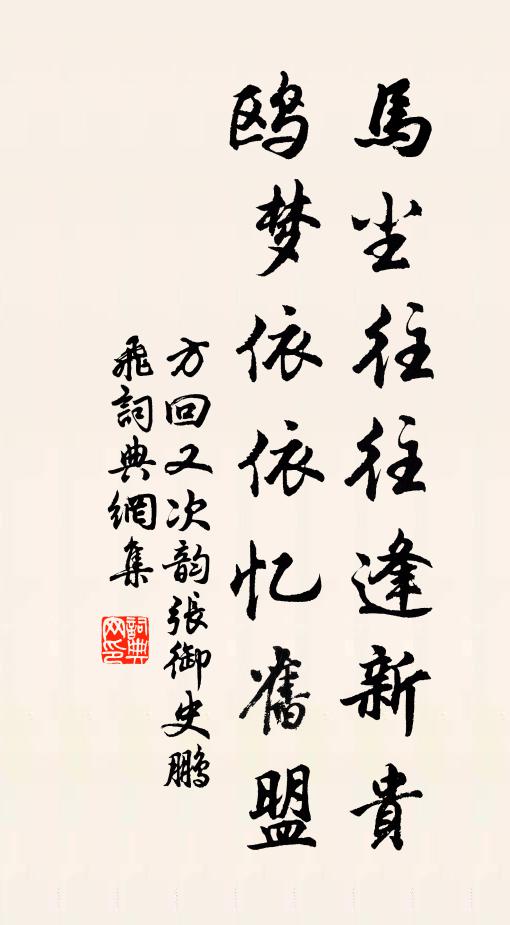 馬尘往往逢新貴
鸥梦依依忆舊盟
方回又次韵張御史鵬
飛詞典網集
詞典网印